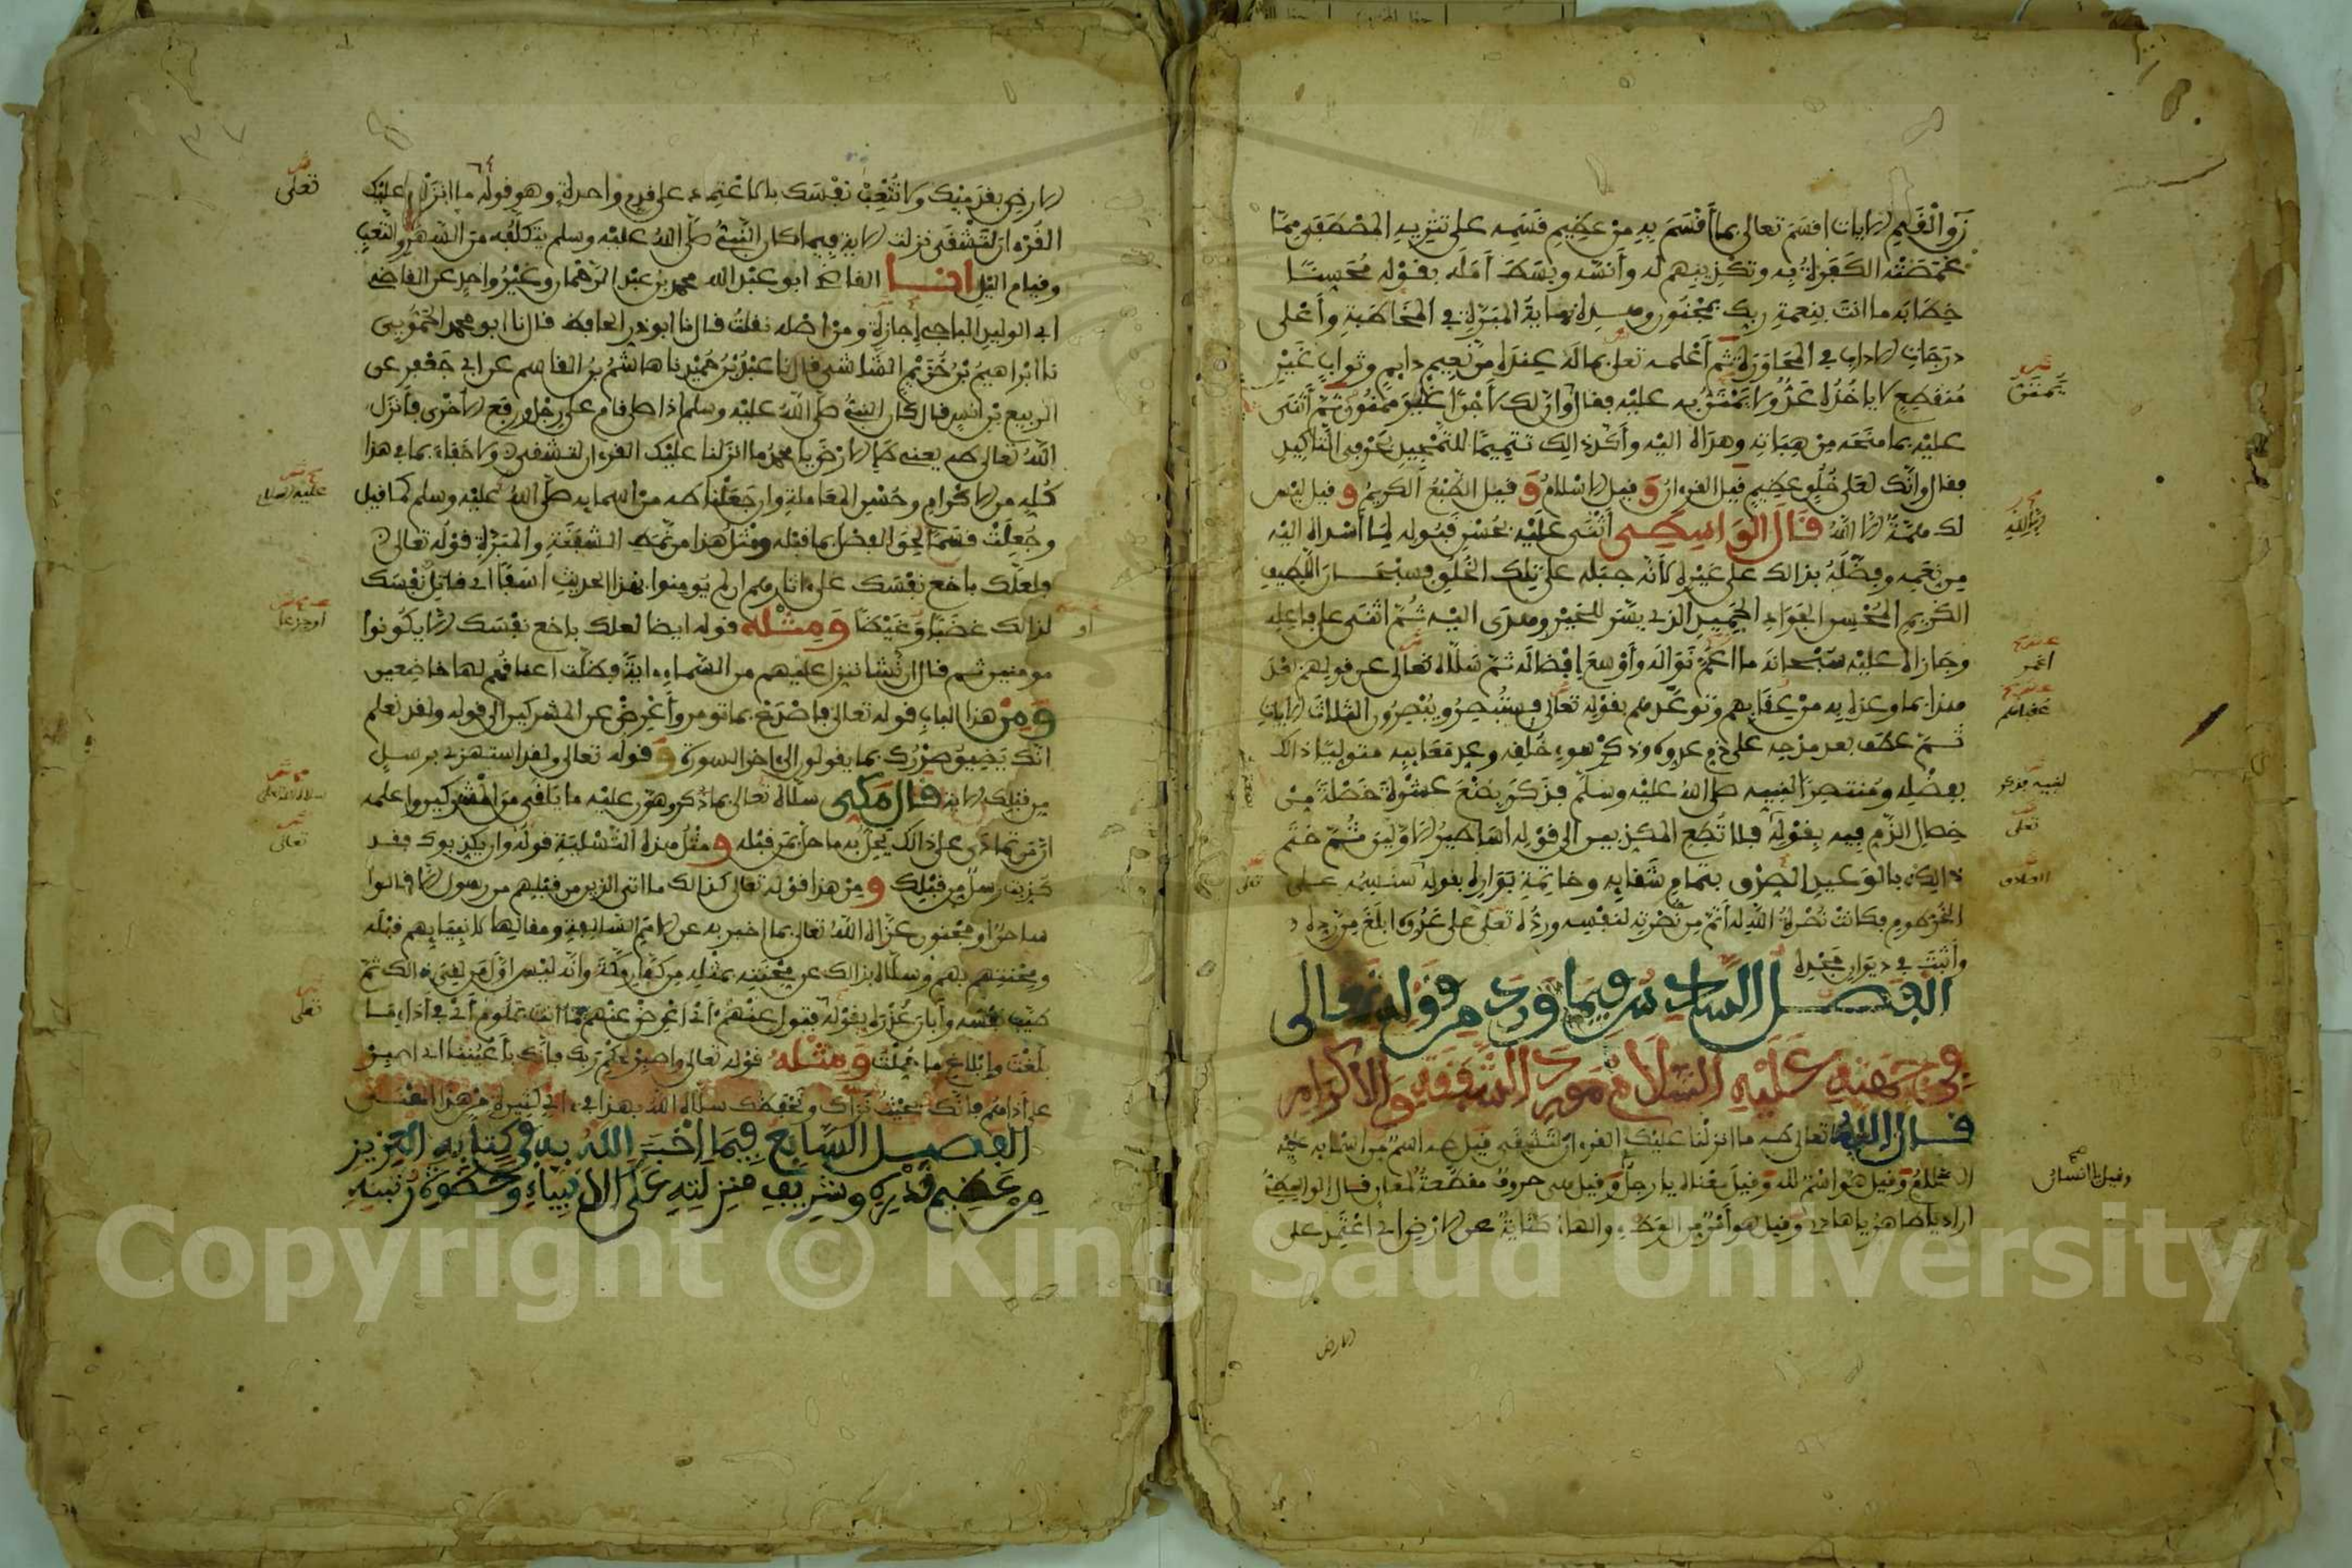 نٓ والقلم الايات اقسم تعالى بما أقسم به من عظيم قسمه على تنزيه المصطفى مما
غمصته الكفرة به وتكذيبهم له وأنسه وبسط أمله بقوله محسنا
خطابه ما انت بنعمة ربك بمجنون وهذه نهاية المبرة في المخاطبة وأعلى
درجات الاداب في المحاورة ثم أعلمه تعلى بما له عنده من نعيم دايم وثواب غير
منقطع لا ياخذه عد ولا يمتن به عليه فقال وان لك لأجرا غير ممنون ثم أثنى
عليه بما منحه من هباته وهداه اليه وأكد ذالك تتميما للتمجيد بحرفي التأكيد
فقال وانك لعلى خلق عظيم قيل القرءان وقيل الاسلام وقيل الطبع الكريم وقيل ليس
لك همة الا الله قال الواسطي أثنى عليه بحسن قبوله لما أسداه اليه
من نعمه وفضله بذالك على غيره لأنه جبله على تلك الخلق فسبحان اللطيف
الكريم المحسن الجواد الحميد الذي يسر للخير وهدى اليه ثم اثنى على فاعله
وجازاه عليه سبحانه ما اعم نواله وأوسع إفضاله ثم سلاه تعالى عن قولهم بعد
هذا بما وعده به من عقابهم وتوعدهم بقوله تعالى فستبصر ويبصرون الثلاث الايات
ثم عطف بعد مدحه على ذم عدوه وذكر سوء خلقه وعد معايبه متوليا ذالك
بفضله ومنتصرا لنبيه صلى الله عليه وسلم فذكر بضع عشرة خصلة من
خصال الذم فيه بقوله فلا تطع المكذبين الى قوله اساطير الاولين ثم ختم
ذالك بالوعيد الصدق بتمام شقايه وخاتمة بواره بقوله سنسمه على
الخرطوم فكانت نصرة الله له أتم من نصرته لنفسه ورده تعلى على عدوه ابلغ من رده
وأثبت في ديوان مجده
الفصل السادس فيما ورد من قوله تعالى
في جهته عليه السلام مورد الشفقة والاكرام
قال الله تعالى طه ما انزلنا عليك القرءان لتشقى قيل طه اسم من اسمايه عليه
السلام وقيل هو اسم لله وقيل معناه يا رجل وقيل هي حروف مقطعة لمعان قال الواسطي
اراد يا طاهر يا هادي وقيل هو أمر من الوطء والهاء كناية عن الارض اي اعتمد على
الارض
يمتن
تعلى
وقيل يا انسان
الارض بقدميك ولا تتعب نفسك بالاعتماد على قدم واحدة وهو قوله ما انزلنا عليك
القرءان لتشقى نزلت الاية فيما كان النبي صلى الله عليه وسلم يتكلفه من السهر والتعب
وقيام اليل انا القاضي ابو عبد الله محمد بن عبد الرحمان وغير واحد عن القاضي
ابي الوليد الباجي إجازة ومن اصله نقلت قال نا ابو ذر الحافظ قال نا ابو محمد الحمويي
نا ابراهيم بن خزيم الشاشي قال نا عبد بن حميد نا هاشم بن القاسم عن ابي جعفر عن
الربيع بن أنس قال كان النبي صلى الله عليه وسلم اذا صلى قام على رجل ورفع الأخرى فأنزل
الله تعالى طه يعني طإ الارض يا محمد ما انزلنا عليك القرءان لتشقى ولا خفاء بما في هذا
كله من الاكرام وحسن المعاملة وان جعلنا طه من اسمايه صلى الله عليه وسلم كما قيل
وجعلت قسما لحق الفصل بما قبله ومثل هذا من نمط الشفقة والمبرة قوله تعالى
فلعلك باخع نفسك على ءاثارهم ان لم يومنوا بهذا الحديث اسفا اي قاتل نفسك
لذالك غضبا وغيظا ومثله قوله ايضا لعلك باخع نفسك الا يكونوا
مومنين ثم قال ان نشا ننزل عليهم من السماء ءاية فظلت اعناقهم لها خاضعين
ومن هذا الباب قوله تعالى فاصدع بما تومر وأعرض عن المشركين الى قوله ولقد نعلم
انك يضيق صدرك بما يقولون الى ءاخر السورة وقوله تعالى ولقد استهزئ برسل
من قبلك الاية قال مكي سلاه تعالى بما ذكر وهون عليه ما يلقى من المشركين واعلمه
ان من تمادى على ذالك يحل به ما حل بمن قبله ومثل هذه التسلية قوله وان يكذبوك فقد
كذبت رسل من قبلك ومن هذا قوله تعالى كذالك ما اتى الذين من قبلهم من رسول الا قالوا
ساحر او مجنون عزاه الله تعالى بما اخبر به عن الامم السالفة ومقالها لانبيايهم قبله
ومحنتهم بهم وسلاه بذالك عن محنته بمثله من كفار مكة وأنه ليس اول من لقي ذالك ثم
طيب نفسه وأبان عذره بقوله فتول عنهم أي اعرض عنهم فما انت بملوم أي في أداء ما
بلغت وإبلاغ ما حملت ومثله قوله تعالى واصبر لحكم ربك فإنك بأعيننا اي اصبر
على أذاهم فانك بحيث نراك ونحفظك سلاه الله بهذا في ءاي كثيرة من هذا المعنى
الفصل السابع فيما اخبر الله به في كتابه العزيز
من عظيم قدره وشريف منزلته على الانبياء وحظوة رتبته
تعلى
عليه السلام
أو جزعا
تعالى
تعلى
Copyright © King Saud University